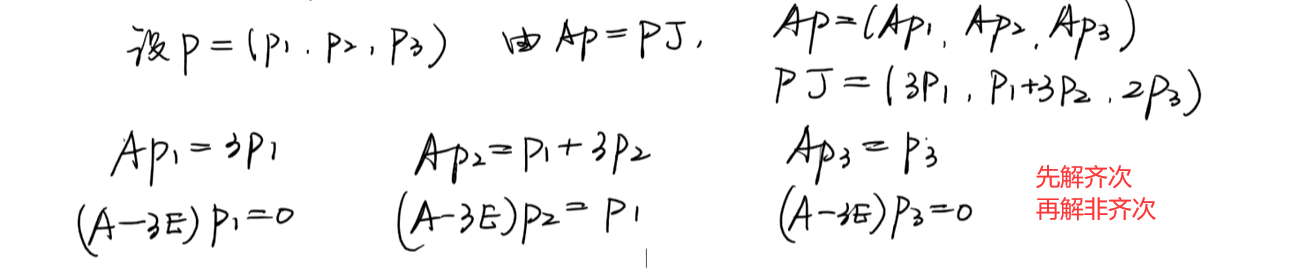 设 P=(P1, P2, P3) 由 AP=PJ, AP=(AP1, AP2, AP3)
PJ=(3P1, P1+3P2, 2P3)
AP1=3P1 AP2=P1+3P2 AP3=P3
(A-3E)P1=0 (A-3E)P2=P1 (A-3E)P3=0
先解齐次
再解非齐次